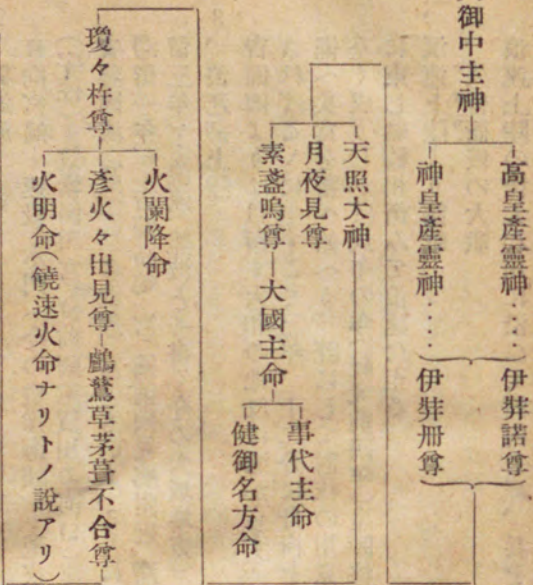 御中主神
高皇產靈神‥‥
神皇產靈神‥‥
伊弉諾尊
伊弉冊尊
天照大神
月夜見尊
素盞嗚尊
大國主命
事代主命
健御名方命
瓊々杵尊
火闌降命
彥火々出見尊
鸕鶿草茅葺不合尊
火明命(饒速火命ナリトノ說アリ)